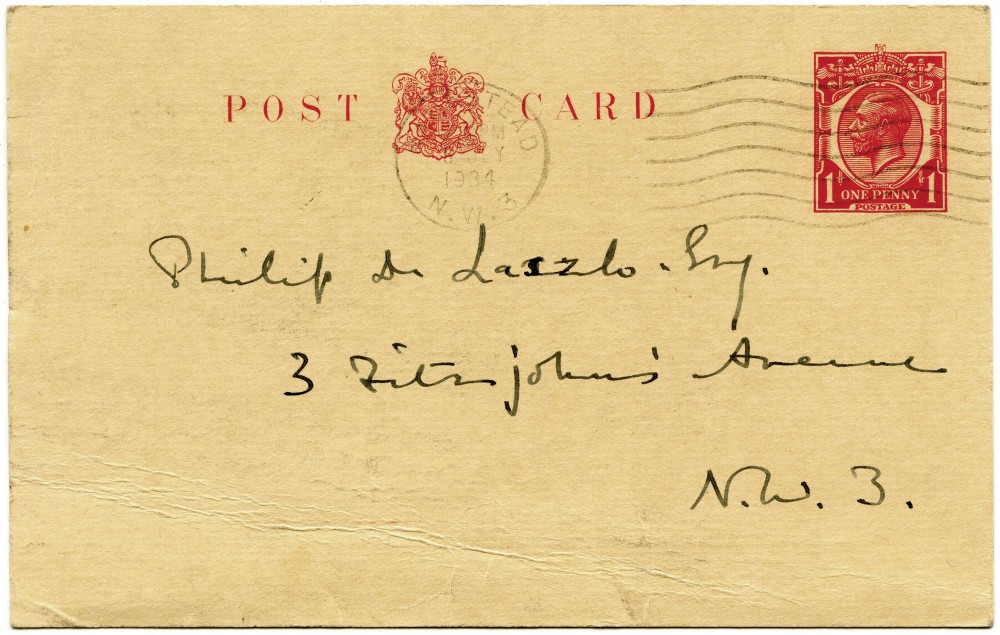 POST CARD
TEAD
1934
N.W.3
1 ONE PENNY 1
POSTAGE
Philip De Laszlo. Esq.
3 Fitzjohn's Avenue
N.W. 3.